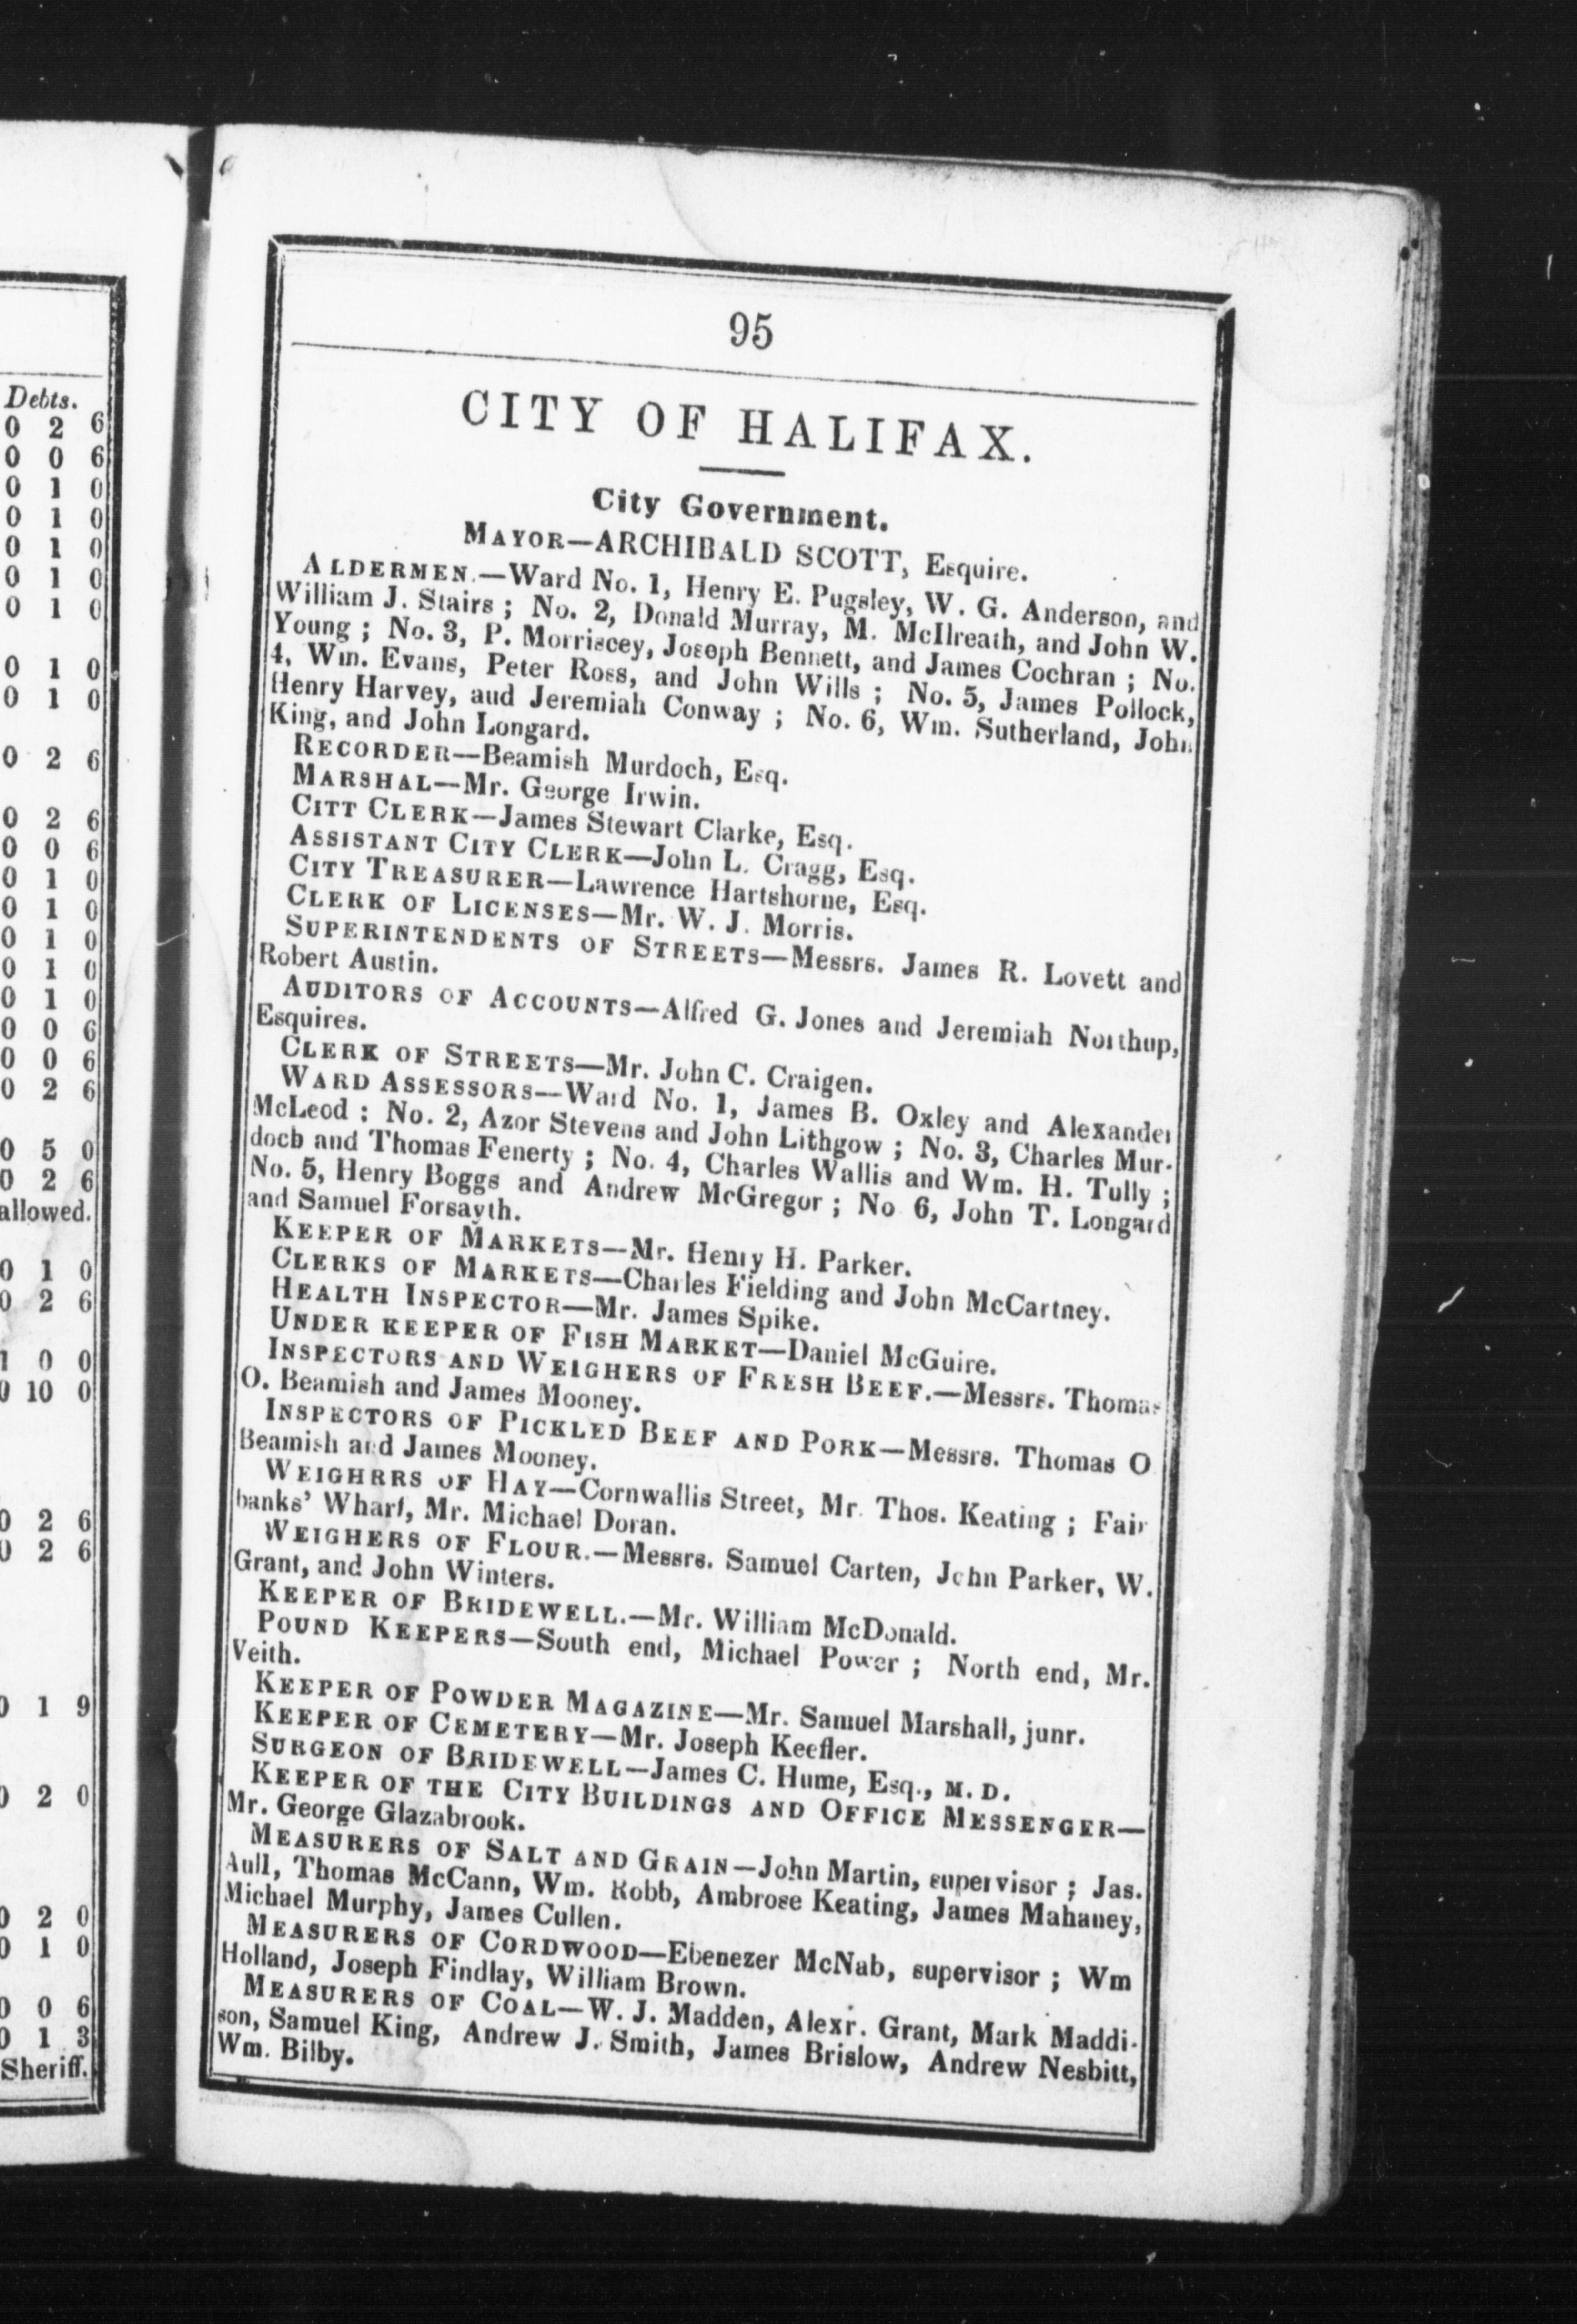 Debts.
0 2 6
0 0 6
0 1 0
0 1 0
0 1 0
0 1 0
0 1 0
0 1 0
0 1 0
0 2 6
0 2 6
0 0 6
0 1 0
0 1 0
0 1 0
0 1 0
0 1 0
0 0 6
0 0 6
0 2 6
0 5 0
0 2 6
allowed.
0 1 0
0 2 6
1 0 0
0 10 0
0 2 6
0 2 6
0 1 9
0 2 0
0 2 0
0 1 0
0 0 6
0 1 3
Sheriff.
95
CITY OF HALIFAX.
City Government.
MAYOR—ARCHIBALD SCOTT, Esquire.
ALDERMEN.—Ward No. 1, Henry E. Pugsley, W. G. Anderson, and
William J. Stairs ; No. 2, Donald Murray, M. McIlreath, and John W.
Young ; No. 3, P. Morriscey, Joseph Bennett, and James Cochran ; No.
4, Wm. Evans, Peter Ross, and John Wills ; No. 5, James Pollock,
Henry Harvey, and Jeremiah Conway ; No. 6, Wm. Sutherland, John
King, and John Longard.
RECORDER—Beamish Murdoch, Esq.
MARSHAL—Mr. George Irwin.
CITT CLERK—James Stewart Clarke, Esq.
ASSISTANT CITY CLERK—John L. Cragg, Esq.
CITY TREASURER—Lawrence Hartshorne, Esq.
CLERK OF LICENSES—Mr. W. J. Morris.
SUPERINTENDENTS OF STREETS—Messrs. James R. Lovett and
Robert Austin.
AUDITORS OF ACCOUNTS—Alfred G. Jones and Jeremiah Northup,
Esquires.
CLERK OF STREETS—Mr. John C. Craigen.
WARD ASSESSORS—Ward No. 1, James B. Oxley and Alexander
McLeod : No. 2, Azor Stevens and John Lithgow ; No. 3, Charles Mur-
doch and Thomas Fenerty ; No. 4, Charles Wallis and Wm. H. Tully ;
No. 5, Henry Boggs and Andrew McGregor ; No 6, John T. Longard
and Samuel Forsayth.
KEEPER OF MARKETS—Mr. Henry H. Parker.
CLERKS OF MARKETS—Charles Fielding and John McCartney.
HEALTH INSPECTOR—Mr. James Spike.
UNDER KEEPER OF FISH MARKET—Daniel McGuire.
INSPECTORS AND WEIGHERS OF FRESH BEEF.—Messrs. Thomas
O. Beamish and James Mooney.
INSPECTORS OF PICKLED BEEF AND PORK—Messrs. Thomas O
Beamish and James Mooney.
WEIGHRRS OF HAY—Cornwallis Street, Mr. Thos. Keating ; Fair
banks' Wharf, Mr. Michael Doran.
WEIGHERS OF FLOUR.—Messrs. Samuel Carten, John Parker, W.
Grant, and John Winters.
KEEPER OF BRIDEWELL.—Mr. William McDonald.
POUND KEEPERS—South end, Michael Power ; North end, Mr.
Veith.
KEEPER OF POWDER MAGAZINE—Mr. Samuel Marshall, junr.
KEEPER OF CEMETERY—Mr. Joseph Keefler.
SURGEON OF BRIDEWELL—James C. Hume, Esq., M. D.
KEEPER OF THE CITY BUILDINGS AND OFFICE MESSENGER—
Mr. George Glazabrook.
MEASURERS OF SALT AND GRAIN—John Martin, supervisor ; Jas.
Aull, Thomas McCann, Wm. Robb, Ambrose Keating, James Mahaney,
Michael Murphy, James Cullen.
MEASURERS OF CORDWOOD—Ebenezer McNab, supervisor ; Wm
Holland, Joseph Findlay, William Brown.
MEASURERS OF COAL—W. J. Madden, Alexr. Grant, Mark Maddi-
son, Samuel King, Andrew J. Smith, James Brislow, Andrew Nesbitt,
Wm. Bilby.